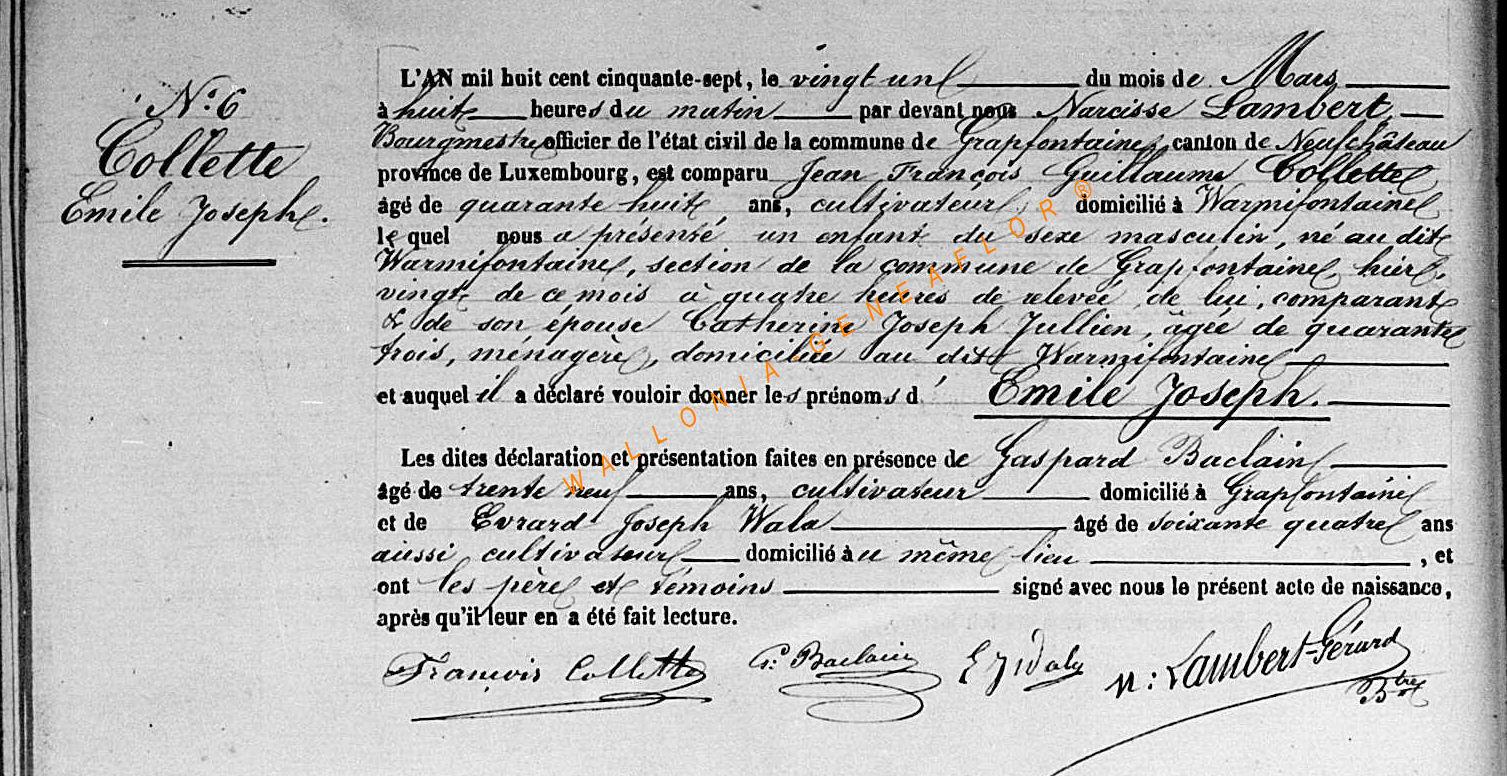 N.º 6
Collette
Emile Joseph.
L'AN mil huit cent cinquante-sept, le vingt un du mois de Mars
à huit heures du matin par devant nous Narcisse Lambert,
Bourgmestre officier de l'état civil de la commune de Grapfontaine, canton de Neufchâteau
province de Luxembourg, est comparu Jean François Guillaume Collette
âgé de quarante huit ans, cultivateur domicilié à Warmifontaine
le quel nous a présenté un enfant du sexe masculin, né au dit
Warmifontaine, section de la commune de Grapfontaine, hier
vingt de ce mois à quatre heures de relevée de lui, comparant
& de son épouse Catherine Joseph Jullien, âgée de quarante
trois, ménagère, domiciliée au dit Warmifontaine
et auquel il a déclaré vouloir donner les prénoms d' Emile Joseph.
Les dites déclaration et présentation faites en présence de Gaspard Baclain
âgé de trente neuf ans, cultivateur domicilié à Grapfontaine
et de Evrard Joseph Wala âgé de soixante quatre ans
aussi cultivateur domicilié au même lieu, et
ont les père et témoins signé avec nous le présent acte de naissance,
après qu'il leur en a été fait lecture.
François Collette G: Baclain E J Wala N: Lambert-Gérard
Btre
WALLONIA-GENEAFLOR®